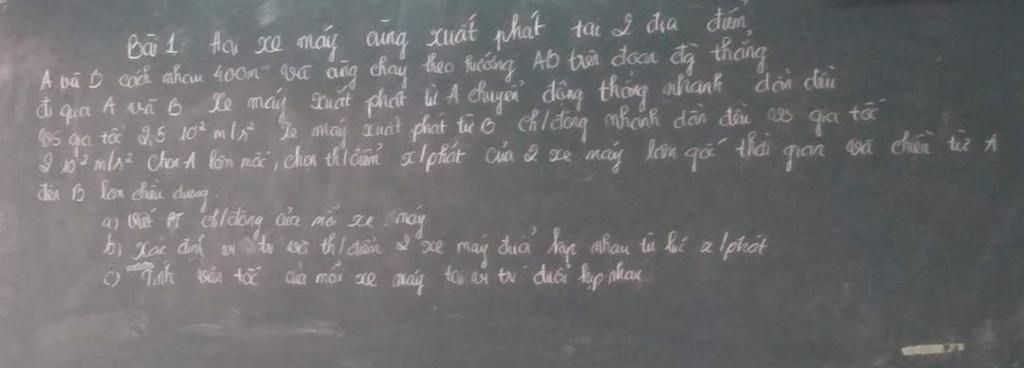 Bài 1: Hai xe máy cùng xuất phát tại 2 địa điểm
A và B cách nhau 400m và cùng chạy theo hướng AB trên đoạn đg thẳng
đi qua A và B Xe máy xuất phát từ A chuyển động thẳng nhanh dần đều
với gia tốc 2,5 10⁻² m/s² Xe máy xuất phát từ B ch/động nhanh dần đều với gia tốc
2 10⁻² m/s² Chọn A làm mốc, chọn th/điểm x/phát của 2 xe máy làm gốc thời gian và chiều từ A
đến B làm chiều dương
a) Viết PT ch/động của mỗi xe máy
b) Xác định vị trí và th/điểm 2 xe máy đuổi kịp nhau từ lúc x/phát
c) Tính vận tốc của mỗi xe máy tại vị trí đuổi kịp nhau